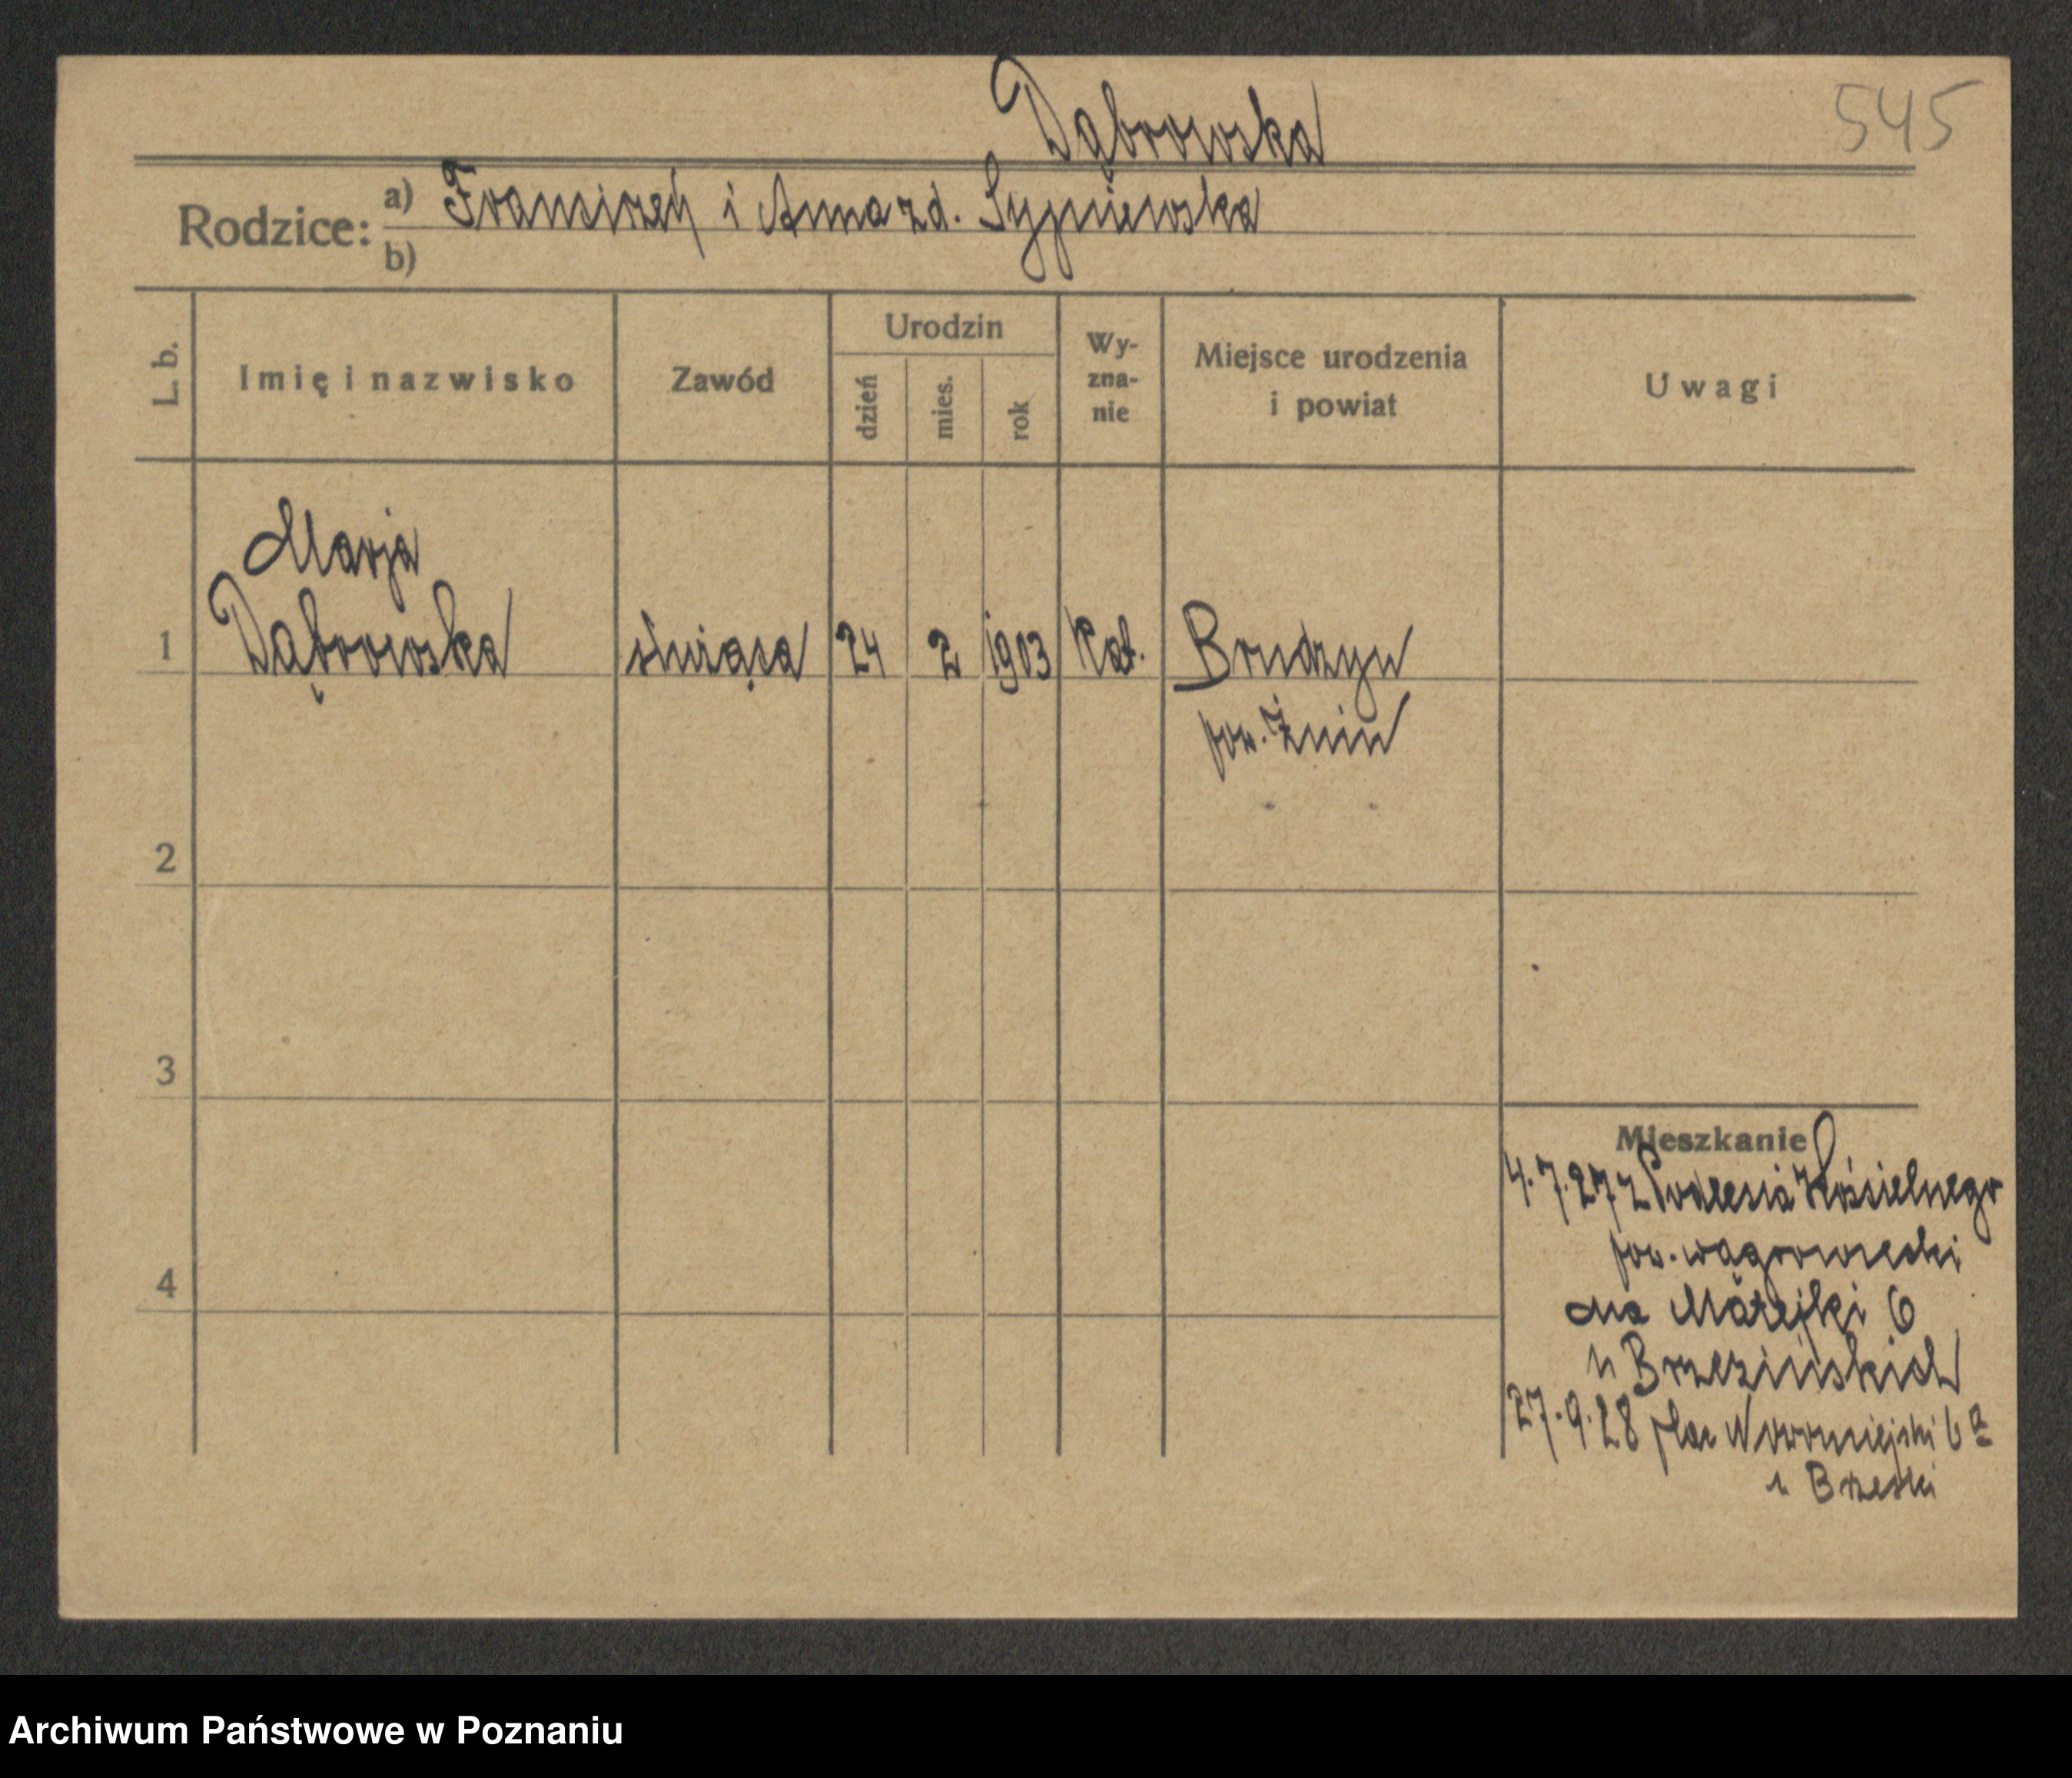 Dąbrowska
545
Rodzice: a) Franciszek i Anna zd. Sypniewska
b)
L. b.
Imię i nazwisko
Zawód
Urodzin
dzień
mies.
rok
Wy-
zna-
nie
Miejsce urodzenia
i powiat
Uwagi
Marja
1 Dąbrowska służąca 24 2 1903 Kat. Brudzyń
pow. Żnin
2
3
Mieszkanie
4.7.27 z Podlesia Kościelnego
pow. wągrowiecki
4
na Matejki 6
u Brzezińskich
27.9.28 plac Nowomiejski 6a
u Brzeski
Archiwum Państwowe w Poznaniu